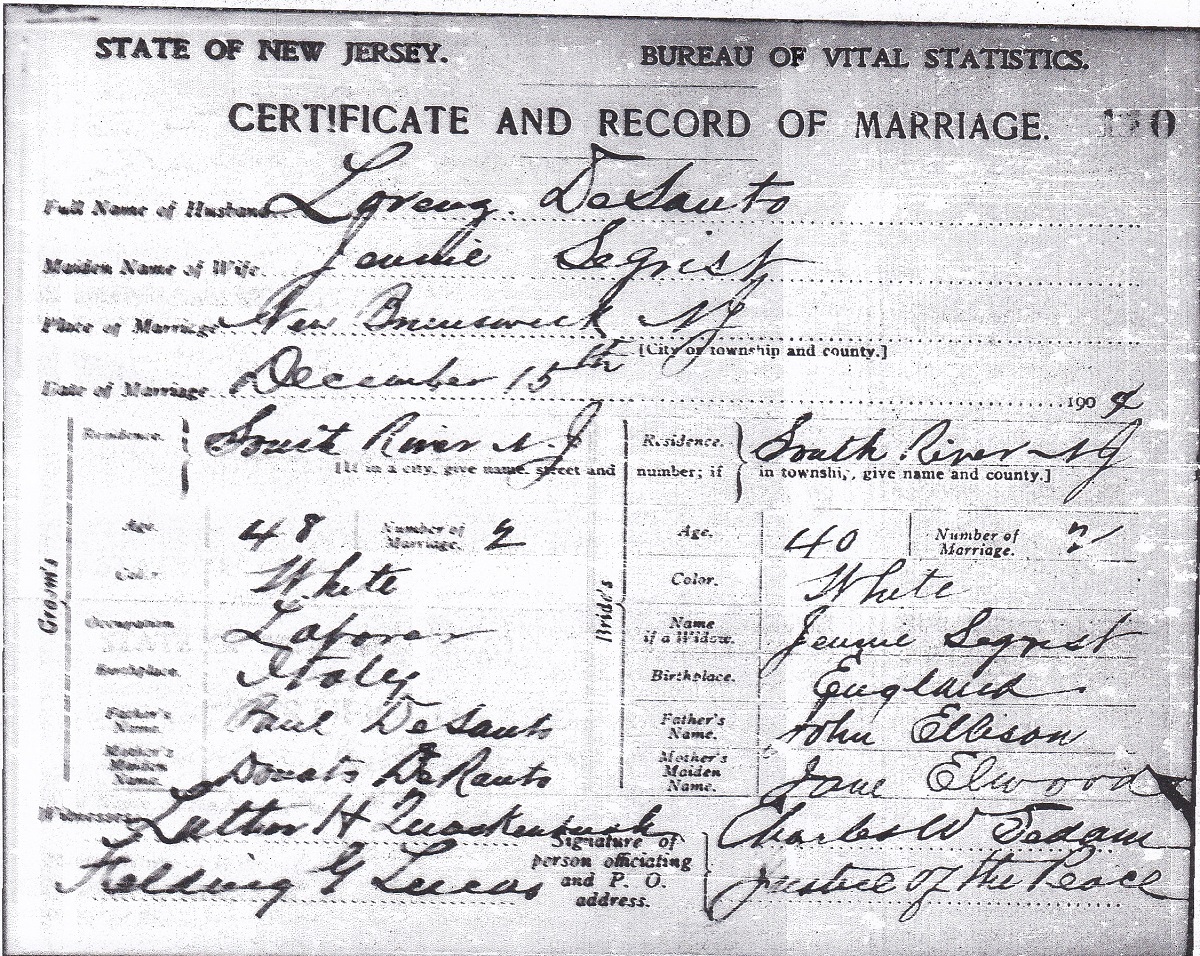 STATE OF NEW JERSEY. BUREAU OF VITAL STATISTICS.
CERTIFICATE AND RECORD OF MARRIAGE.
Full Name of Husband Lorenz. DeSanto
Maiden Name of Wife Jennie Segrist
Place of Marriage New Brunswick NJ
[City or township and county.]
Date of Marriage December 15th 1904
Groom's
Residence. South River NJ
Bride's
Residence. South River NJ
[If in a city, give name, street and number; if in township, give name and county.]
Age. 48 Number of Marriage. 2
Age. 40 Number of Marriage. 2
Color. White
Color. White
Occupation. Laborer
Name if a Widow. Jennie Segrist
Birthplace. Italy
Birthplace. England
Father's Name. Paul DeSanto
Father's Name. John Ellison
Mother's Maiden Name. Donato DeRanto
Mother's Maiden Name. Jane Elwood
Witnesses Luther H Quackenbush
Fielding G Lucas
Signature of person officiating and P. O. address.
Charles W Sedam
Justice of the Peace